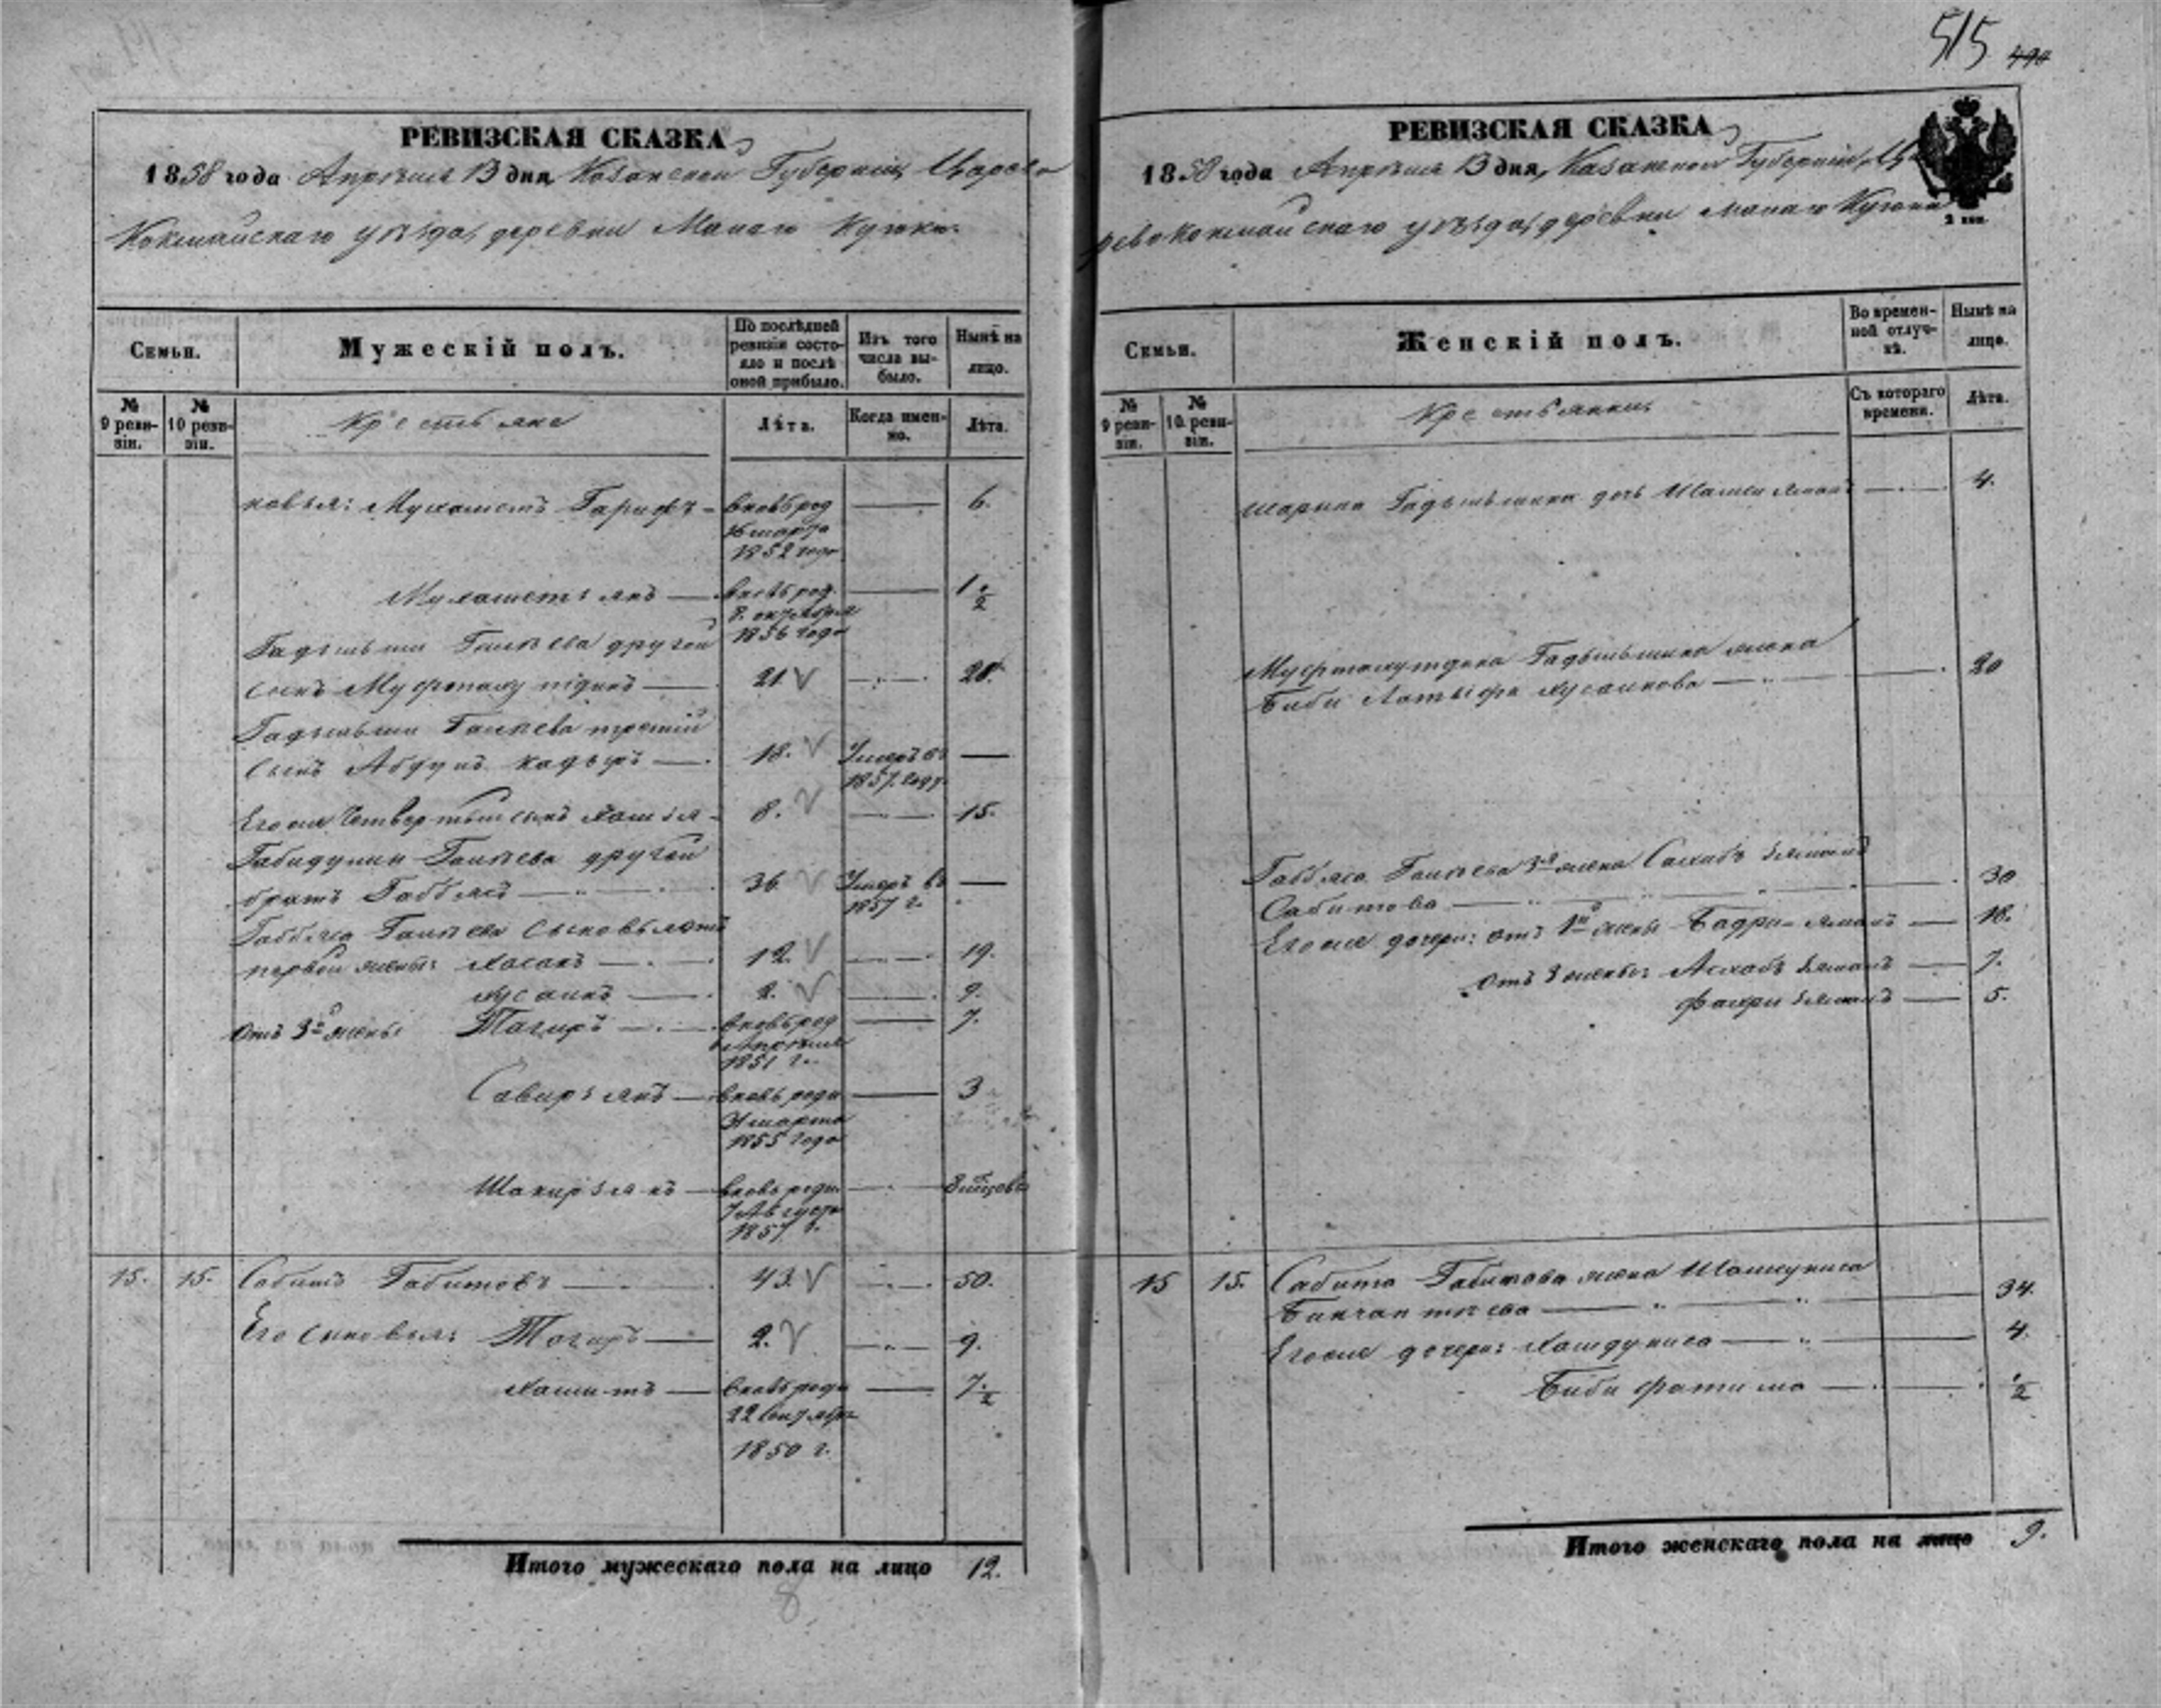 515 490
РЕВИЗСКАЯ СКАЗКА
1858 года Апрѣля 13 дня, Казанской Губерніи, Царево
Кокшайскаго уѣзда, деревни Малаго Кугюка.
Семьи.
Мужескій полъ.
По послѣдней ревизіи состояло и послѣ оной прибыло.
Изъ того числа выбыло.
Нынѣ на лицо.
№ 9 ревизіи.
№ 10 ревизіи.
Крестьяне
Лѣта.
Когда именно.
Лѣта.
новья: Мухаметъ Гарифъ - вновь род 6.
16 марта
1852 года
Мухаметзянъ — вновь род. — 1 1/2
8. октября
1856 года
Гадыльши Галѣева другой
сынъ 21. 28.
Гадыльши Галѣева третій
сынъ Абдулъ Кадыръ — 18. Умеръ въ —
1857. году.
Его же четвертый сынъ 8. 15.
Габидулин Галѣева другой
братъ Габбясъ — 36 Умеръ въ —
1857 г.
Габбяса Галѣева сыновья отъ
первой жены: Хасанъ — 12. 19.
Хусаинъ — 2. 9.
отъ 3й жены Тагиръ — вновь род — 7.
Апрѣля
1851 г.
Сабирзянъ — вновь роди — 3
марта
1855 года
Шакирзянъ — вновь роди.
7 Августа
1857. г.
15. 15. Сабитъ Габитовъ — 43. 50.
Его сыновья: Тагиръ — 2. 9.
Хамитъ — вновь роди — 7 1/2
22 октября
1850 г.
Итого мужескаго пола на лицо 12.
8
РЕВИЗСКАЯ СКАЗКА
1858 года Апрѣля 13 дня, Казанской Губерніи, Ца
ревококшайскаго уѣзда, деревни Малаго Кугюка
2 коп.
Семьи.
Женскій полъ.
Во временной отлучкѣ.
Нынѣ на лицо.
№ 9 ревизіи.
№ 10. ревизіи.
Крестьянки
Съ котораго времени.
Лѣта.
Гадыльшина дочь 4.
Гадыльшина жена
Биби Латыфа Хусаинова — 20
Габбяса Галѣева 3я жена Сахабзямалъ
Сабитова — 30
Его же дочери: отъ 1й жены Бадри-ямалъ — 18.
отъ 3 жены Асхабзямалъ — 7.
Фахризямалъ — 5.
15 15. Сабита Габитова жена Шамсуниса
34.
Его же дочери: 4.
Биби фатима — 1/2
Итого женскаго пола на лицо 9.